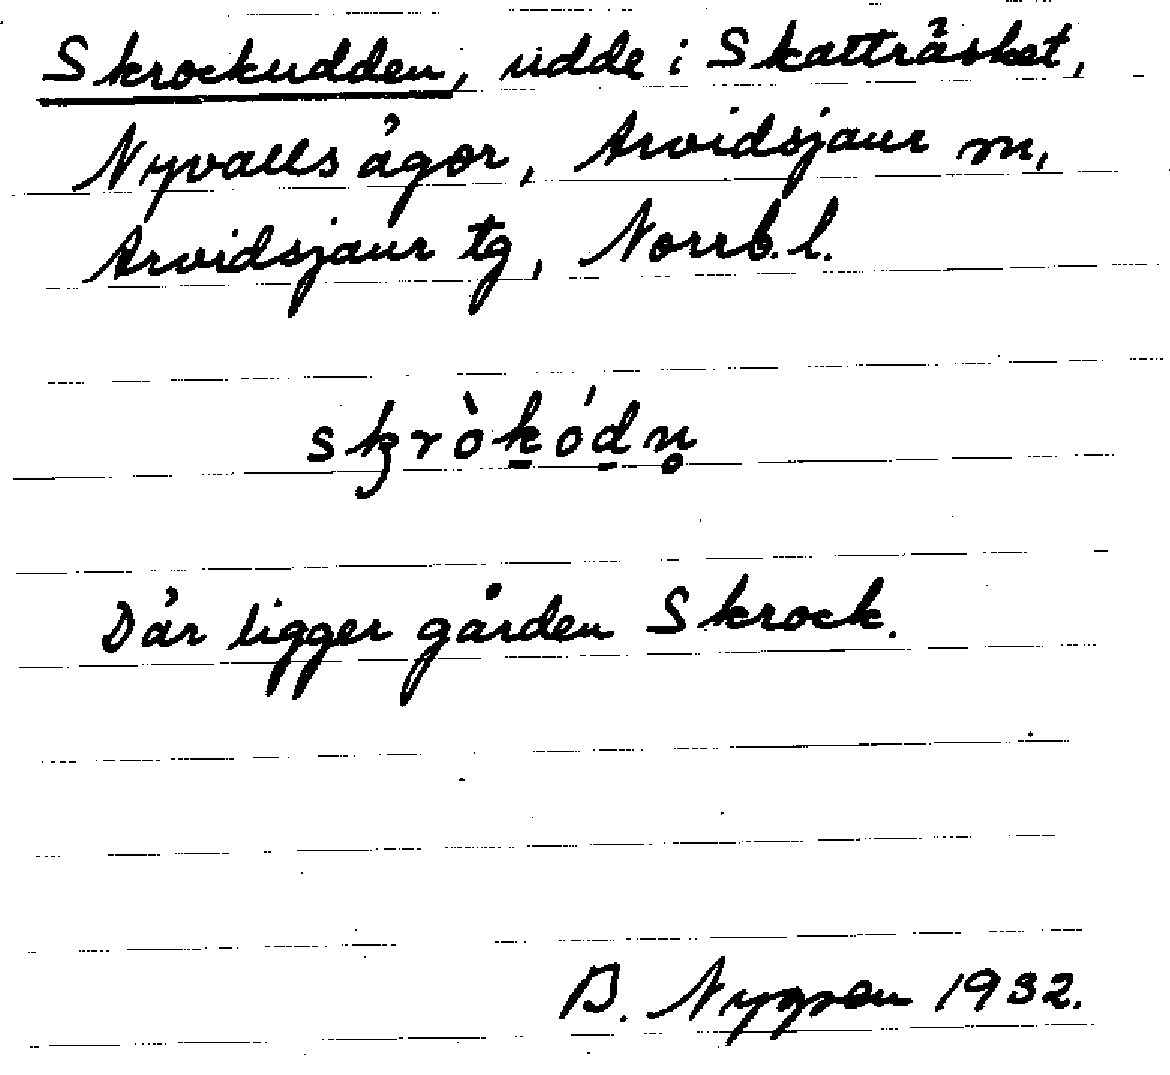 Skrockudden, udde i Skatträsket,
Nyvalls ägor, Arvidsjaur sn,
Arvidsjaur tg, Norrb. l.
skròḵóḏn̥
Där ligger gården Skrock.
B. Nygren 1932.